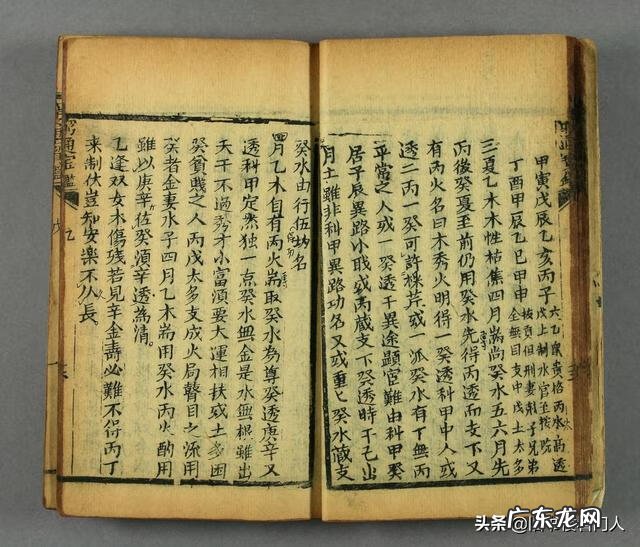 甲寅戊辰乙亥丙子
六乙鼠貴格丙水高透
戊上制水官至按院
丁酉甲辰乙巳甲申
但刑妻尅子兄弟
全無因支中戊土太多
三夏乙木木性枯焦四月耑尚癸水五六月先
丙後癸夏至前仍用癸水先得丙透而支下又
有丙火名曰木秀火明得一癸透科甲中人或
透二丙一癸可許採芹或一派癸水有丁無丙
平常之人或一癸透干異途顯宦難由科甲癸
居子辰異路小職或丙藏支下癸透時干己出
月土雖非科甲異路功名又或重々癸水藏支
癸水由行伍名
四月乙木自有丙火耑取癸水為尊癸透庚辛又
透科甲定然独一点癸水無金是水無根雖出
天干不過秀才小富須要大運相扶或土多困
癸貧賤之人丙戊太多支成火局瞽目之流用
癸者金妻水子四月乙木耑用癸水丙火酌用
雖以庚辛佐癸須辛透為清
乙逢双女木傷残若見辛金壽必難不得丙丁
来制伏豈知安樂不久長
窮通宝鑑
乙
头条
广东龙网